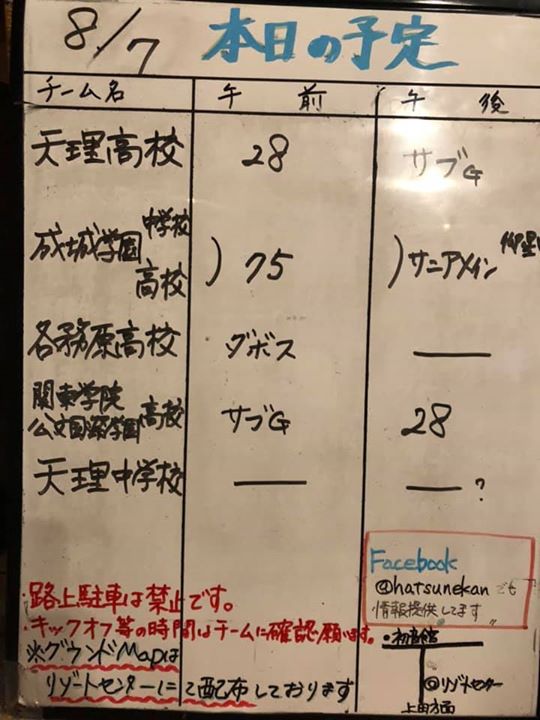 8/7 本日の予定
チーム名 午前 午後
天理高校 28 サブG
成城学園 中学校 高校 ) 75 ) サニアメイン
各務原高校 ダボス ―
関東学院 高校 サブG 28
公文国際学園
天理中学校 ― ― ?
Facebook
@hatsunekan でも
情報提供してます
・路上駐車は禁止です。
・キックオフ等の時間はチームに確認願います。
※グラウンドMapは
リゾートセンターにて配布しております
・初音館
◎リゾートセンター
上田方面